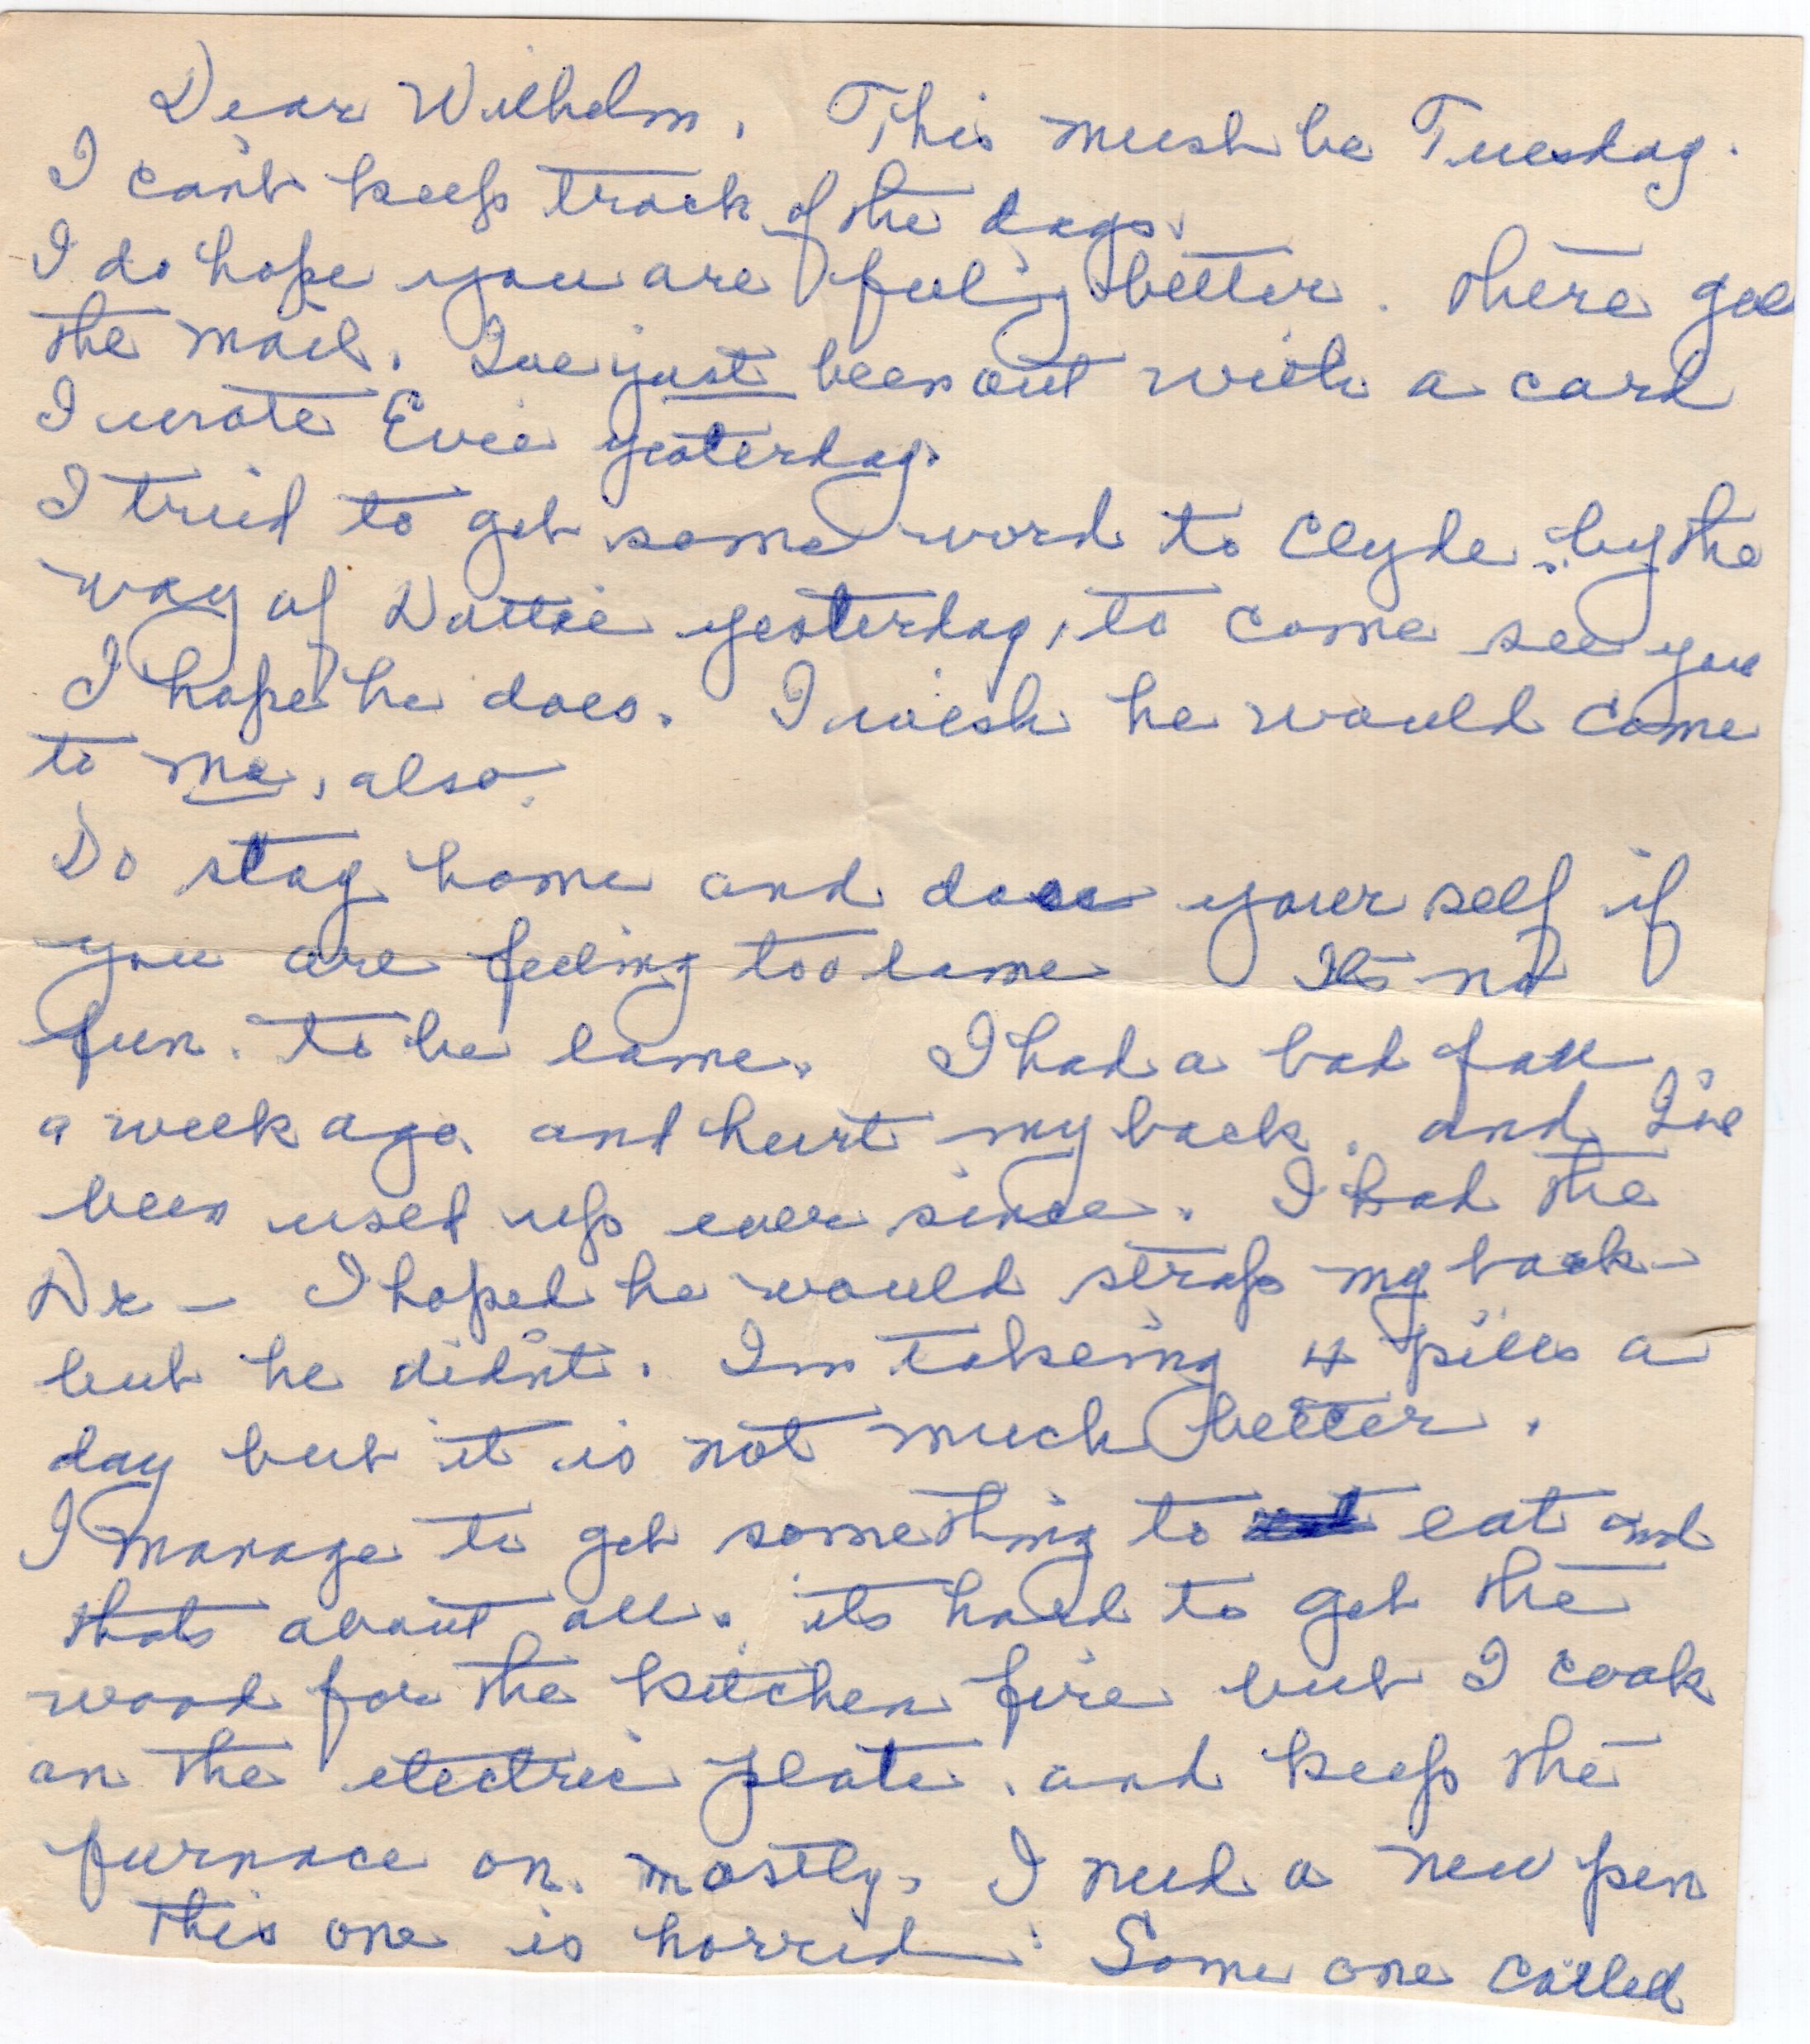 Dear Wilhelm. This must be Tuesday.
I can't keep track of the days.
I do hope you are feeling better. There goes
the mail. I've just been out with a card
I wrote Evie yesterday.
I tried to get some word to Clyde, by the
way of Dottie yesterday, to come see you
I hope he does. I wish he would come
to me, also.
Do stay home and doss yourself if
you are feeling too lame It's not
fun. to be lame. I had a bad fall
a week ago. and hurt my back. and I've
been used up ever since. I had the
Dr - I hoped he would strap my back -
but he didn't. Im takeing 4 pills a
day but it is not much better.
I manage to get something to eat and
thats about all. its hard to get the
wood for the kitchen fire but I cook
on the electric plate. and keep the
furnace on. mostly. I need a new pen
this one is horrid. Some one called